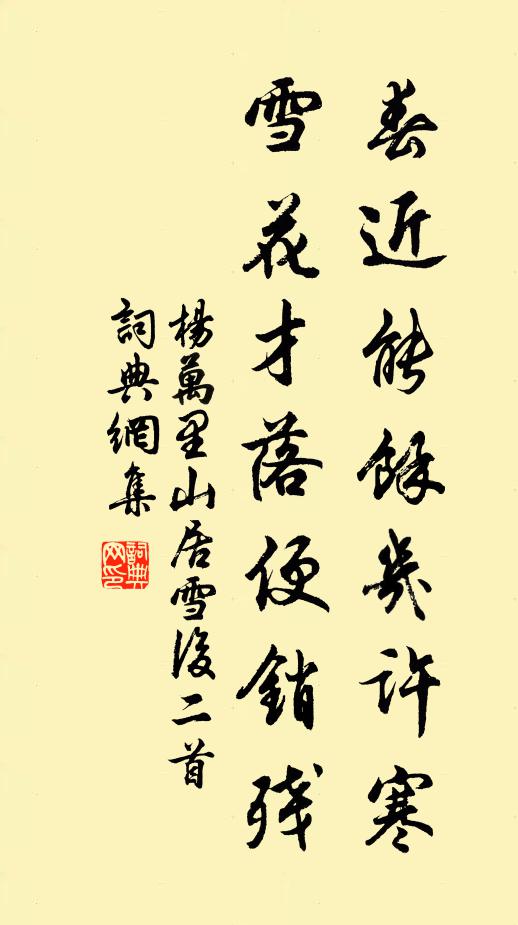 春近能餘幾許寒
雪花才落便銷殘
楊萬里山居雪後二首
詞典網集
詞典网印